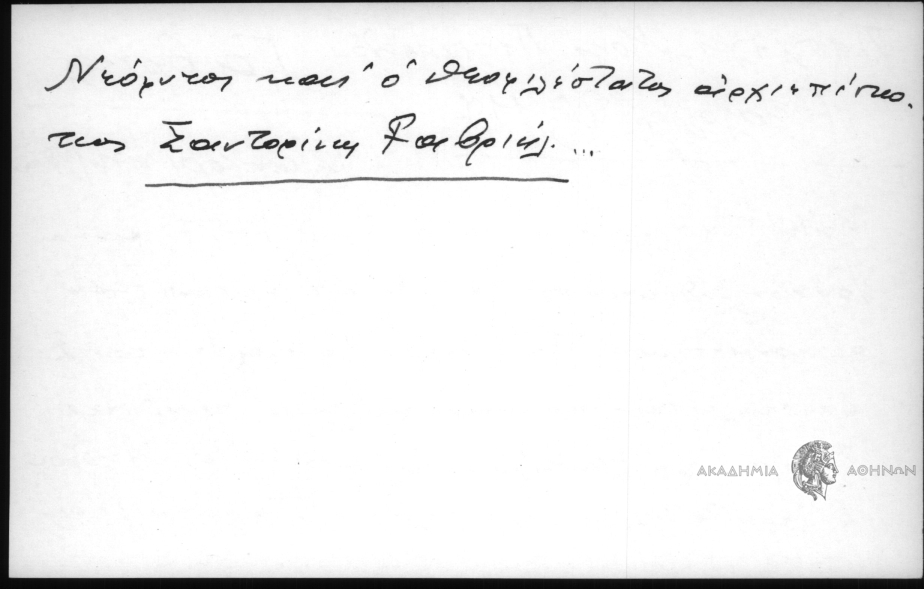 Νεόφυτος καὶ ὁ θεοφιλέστατος ἀρχιεπίσκο.
πος Σαντορίνης Γαβριήλ. ...
ΑΚΑΔΗΜΙΑ ΑΘΗΝΩΝ